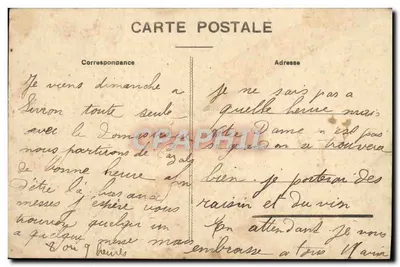 CARTE POSTALE
Correspondance
Adresse
Je viens dimanche a
Livron toute seule
avec le
nous partirons de Cazals
de bonne heure afin
d'être là bas aux
messes j'espère vous
trouver quelqu'un
a quelque messe mais
8 ou 9 heures
je ne sais pas a
quelle heure mais
Dame n'est pas
on a trouvera
bien. je porterai des
raisin et du vin
En attendant je vous
embrasse a tous Maria
CPAPHIL